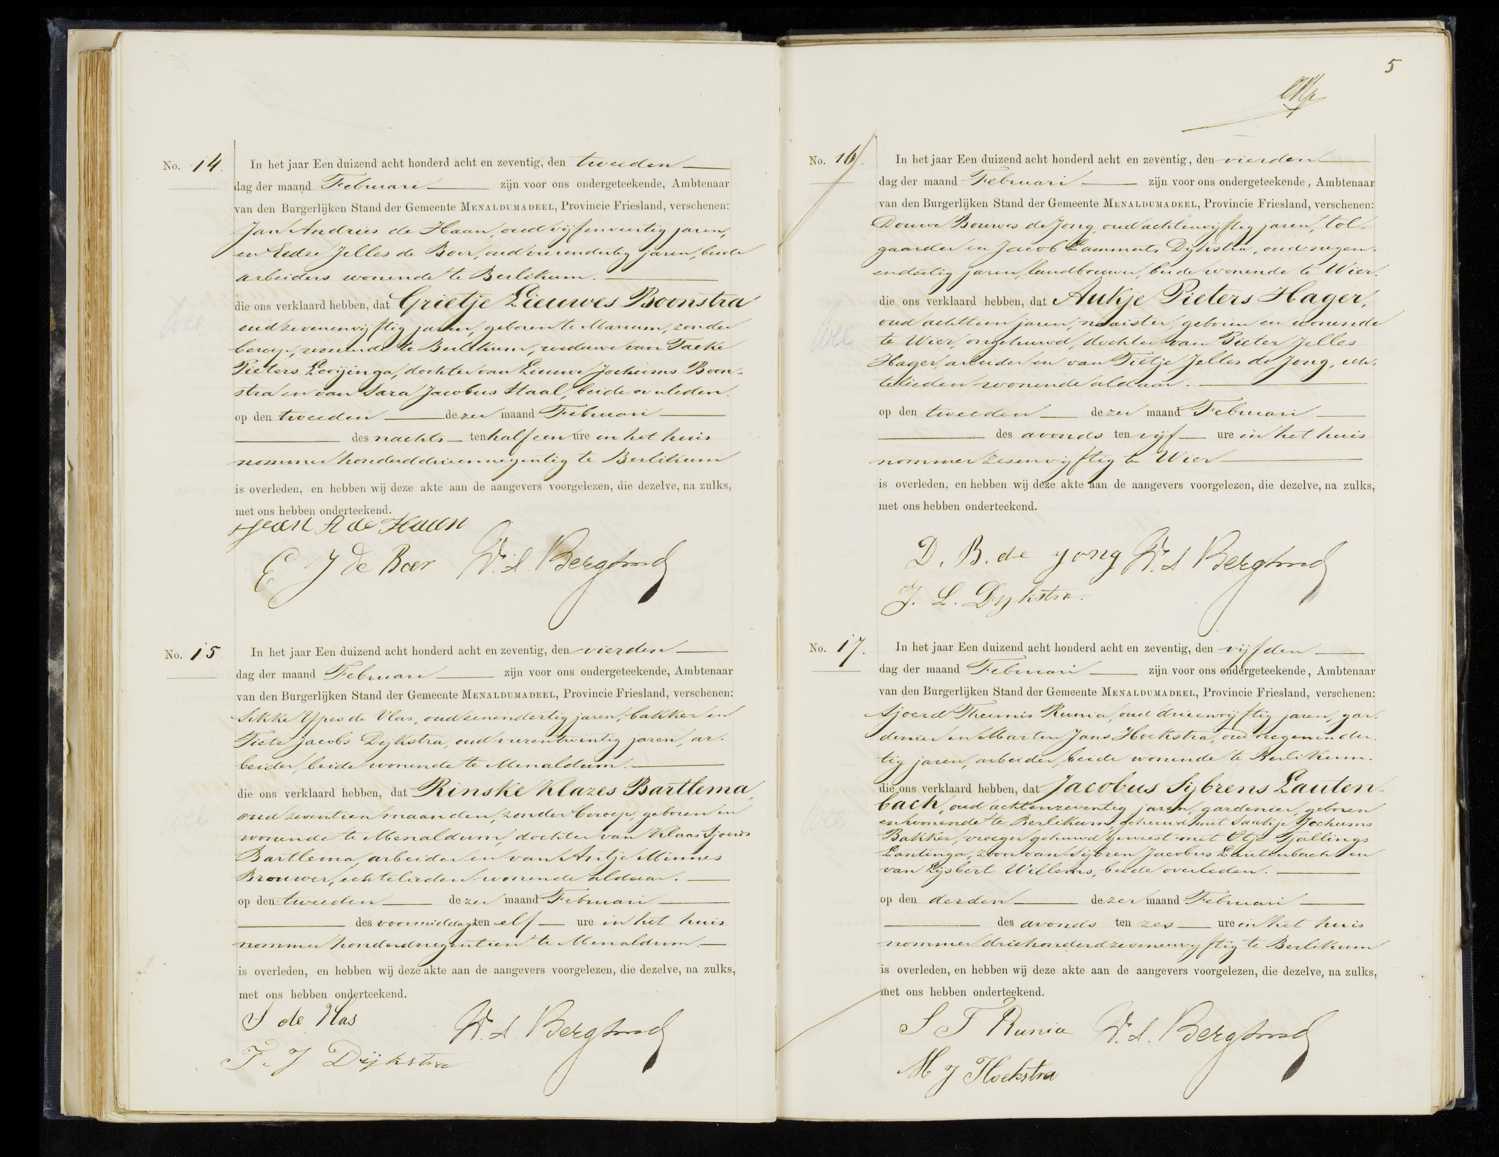 No. 14.
In het jaar Een duizend acht honderd acht en zeventig, den tweeden
dag der maand Februari zijn voor ons ondergeteekende, Ambtenaar
van den Burgerlijken Stand der Gemeente MENALDUMADEEL, Provincie Friesland, verschenen:
Jan Andries de Haan, oud vijfenveertig jaren,
en Eedse Jelles de Boer, oud vierendertig jaren, beide
arbeiders wonende te Berlikum.
die ons verklaard hebben, dat Grietje Lieuwes Boonstra
oud zevenenvijftig jaren, geboren te Marsum, zonder
beroep, wonende te Berlikum, weduwe van Taeke
Pieters Looijinga, dochter van Lieuwe Jochums Boon-
stra en van Sara Jacobus Staal, beide overleden.
op den tweeden dezer maand Februari
des nachts ten half een ure in het huis
nommer honderddrieennegentig te Berlikum
is overleden, en hebben wij deze akte aan de aangevers voorgelezen, die dezelve, na zulks,
met ons hebben onderteekend.
Jean A de Haan
E J de Boer W. S. Bergsma
No. 15
In het jaar Een duizend acht honderd acht en zeventig, den vierden
dag der maand Februari zijn voor ons ondergeteekende, Ambtenaar
van den Burgerlijken Stand der Gemeente MENALDUMADEEL, Provincie Friesland, verschenen:
Sikke Ypes de Vlas, oud zevenendertig jaren, bakker en
Fiete Jacobs Dijkstra, oud vierentwintig jaren, ar-
beider, beide wonende te Menaldum.
die ons verklaard hebben, dat Rinske Klazes Bartlema,
oud zeventien maanden, zonder beroep, geboren en
wonende te Menaldum, dochter van Klaas Sjoerds
Bartlema, arbeider en van Antje Minnes
Brouwer, echtelieden wonende aldaar.
op den tweeden dezer maand Februari
des voormiddags ten elf ure in het huis
nommer honderdnegentien te Menaldum
is overleden, en hebben wij deze akte aan de aangevers voorgelezen, die dezelve, na zulks,
met ons hebben onderteekend.
S de Vlas W. S. Bergsma
F. J Dijkstra
5
No. 16.
In het jaar Een duizend acht honderd acht en zeventig, den vierden
dag der maand Februari zijn voor ons ondergeteekende, Ambtenaar
van den Burgerlijken Stand der Gemeente MENALDUMADEEL, Provincie Friesland, verschenen:
Douwe Bouwes de Jong, oud achtenvijftig jaren, tol-
gaarder en Jacob Lammerts Dijkstra, oud negen-
endertig jaren, landbouwer, beide wonende te Wier.
die ons verklaard hebben, dat Aukje Pieters Hager,
oud achttien jaren, naaister, geboren en wonende
te Wier, ongehuwd, dochter van Pieter Jelles
Hager, arbeider en van Tietje Jelles de Jong, ech-
telieden wonende aldaar.
op den tweeden dezer maand Februari
des avonds ten vijf ure in het huis
nommer zesenvijftig te Wier
is overleden, en hebben wij deze akte aan de aangevers voorgelezen, die dezelve, na zulks,
met ons hebben onderteekend.
D. B. de jong W. S. Bergsma
J. L. Dijkstra.
No. 17.
In het jaar Een duizend acht honderd acht en zeventig, den vijfden
dag der maand Februari zijn voor ons ondergeteekende, Ambtenaar
van den Burgerlijken Stand der Gemeente MENALDUMADEEL, Provincie Friesland, verschenen:
Sjoerd Theunis Runia, oud drieenvijftig jaren, gar-
denier en Marten Jans Hoekstra, oud negenender-
tig jaren, arbeider, beide wonende te Berlikum.
die ons verklaard hebben, dat Jacobus Sijbrens Lauten-
bach, oud achtenzeventig jaren, gardenier, geboren
en wonende te Berlikum, gehuwd met Saakje Jochums
Bakker, vroeger gehuwd geweest met Etje Tjallings
Lautinga, zoon van Sijbren Jacobus Lautenbach en
van Lysbert Willems, beide overleden.
op den derden dezer maand Februari
des avonds ten zes ure in het huis
nommer driehonderdzevenenvijftig te Berlikum
is overleden, en hebben wij deze akte aan de aangevers voorgelezen, die dezelve, na zulks,
met ons hebben onderteekend.
S T Runia W. S. Bergsma
M J Hoekstra